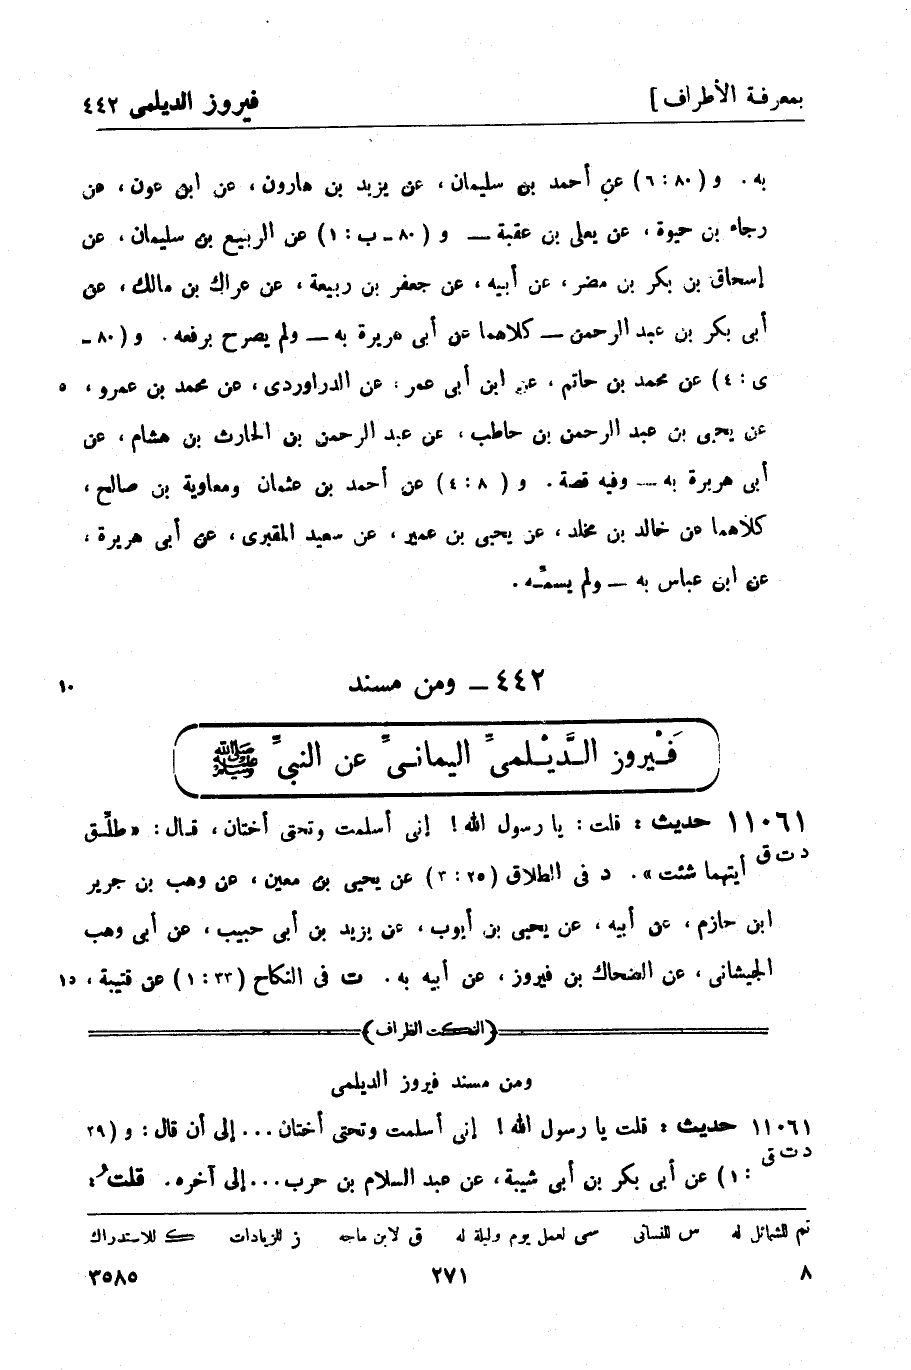 بمعرفة الأطراف ] فيروز الديلمى ٤٤٢
به . و ( ٨٠ : ٦ ) عن أحمد بن سليمان ، عن يزيد بن هارون ، عن ابن عون ، عن
رجاء بن حيوة ، عن يعلى بن عقبة ــ و ( ٨٠ ـ ب : ١ ) عن الربيع بن سليمان ، عن
إسحاق بن بكر بن مضر ، عن أبيه ، عن جعفر بن ربيعة ، عن عراك بن مالك ، عن
أبى بكر بن عبد الرحمن ــ كلاهما عن أبى هريرة به ــ ولم يصرح برفعه . و ( ٨٠ ـ
ى : ٤ ) عن محمد بن حاتم ، عن ابن أبى عمر ، عن الدراوردى ، عن محمد بن عمرو ، ٥
عن يحيى بن عبد الرحمن بن حاطب ، عن عبد الرحمن بن الحارث بن هشام ، عن
أبى هريرة به ــ وفيه قصة . و ( ٨ : ٤ ) عن أحمد بن عثمان ومعاوية بن صالح ،
كلاهما عن خالد بن مخلد ، عن يحيى بن عمير ، عن سعيد المقبرى ، عن أبى هريرة ،
عن ابن عباس به ــ ولم يسمّه .
٤٤٢ ــ ومن مسند ١٠
فَيْروز الدَّيْلمىِّ اليمانىِّ عن النبىِّ ﷺ
١١٠٦١ حديث : قلت : يا رسول الله ! إنى أسلمت وتحتى أختان ، قال : « طلِّق
د ت ق أيتهما شئت » . د فى الطلاق ( ٢٥ : ٣ ) عن يحيى بن معين ، عن وهب بن جرير
ابن حازم ، عن أبيه ، عن يحيى بن أيوب ، عن يزيد بن أبى حبيب ، عن أبى وهب
الجيشانى ، عن الضحاك بن فيروز ، عن أبيه به . ت فى النكاح ( ٣٣ : ١ ) عن قتيبة ، ١٥
( النكت الظراف )
ومن مسند فيروز الديلمى
١١٠٦١ حديث : قلت يا رسول الله ! إنى أسلمت وتحتى أختان ... إلى أن قال : و ( ٣٩
د ت ق : ١ ) عن أبى بكر بن أبى شيبة ، عن عبد السلام بن حرب ... إلى آخره . قلت :
تم للشمائل له س للنسائى سى لعمل يوم وليلة له ق لابن ماجه ز للزيادات ك للاستدراك
٨ ٢٧١ ٣٥٨٥